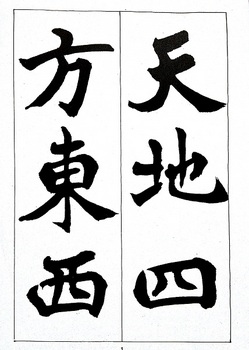 天地四
方東西